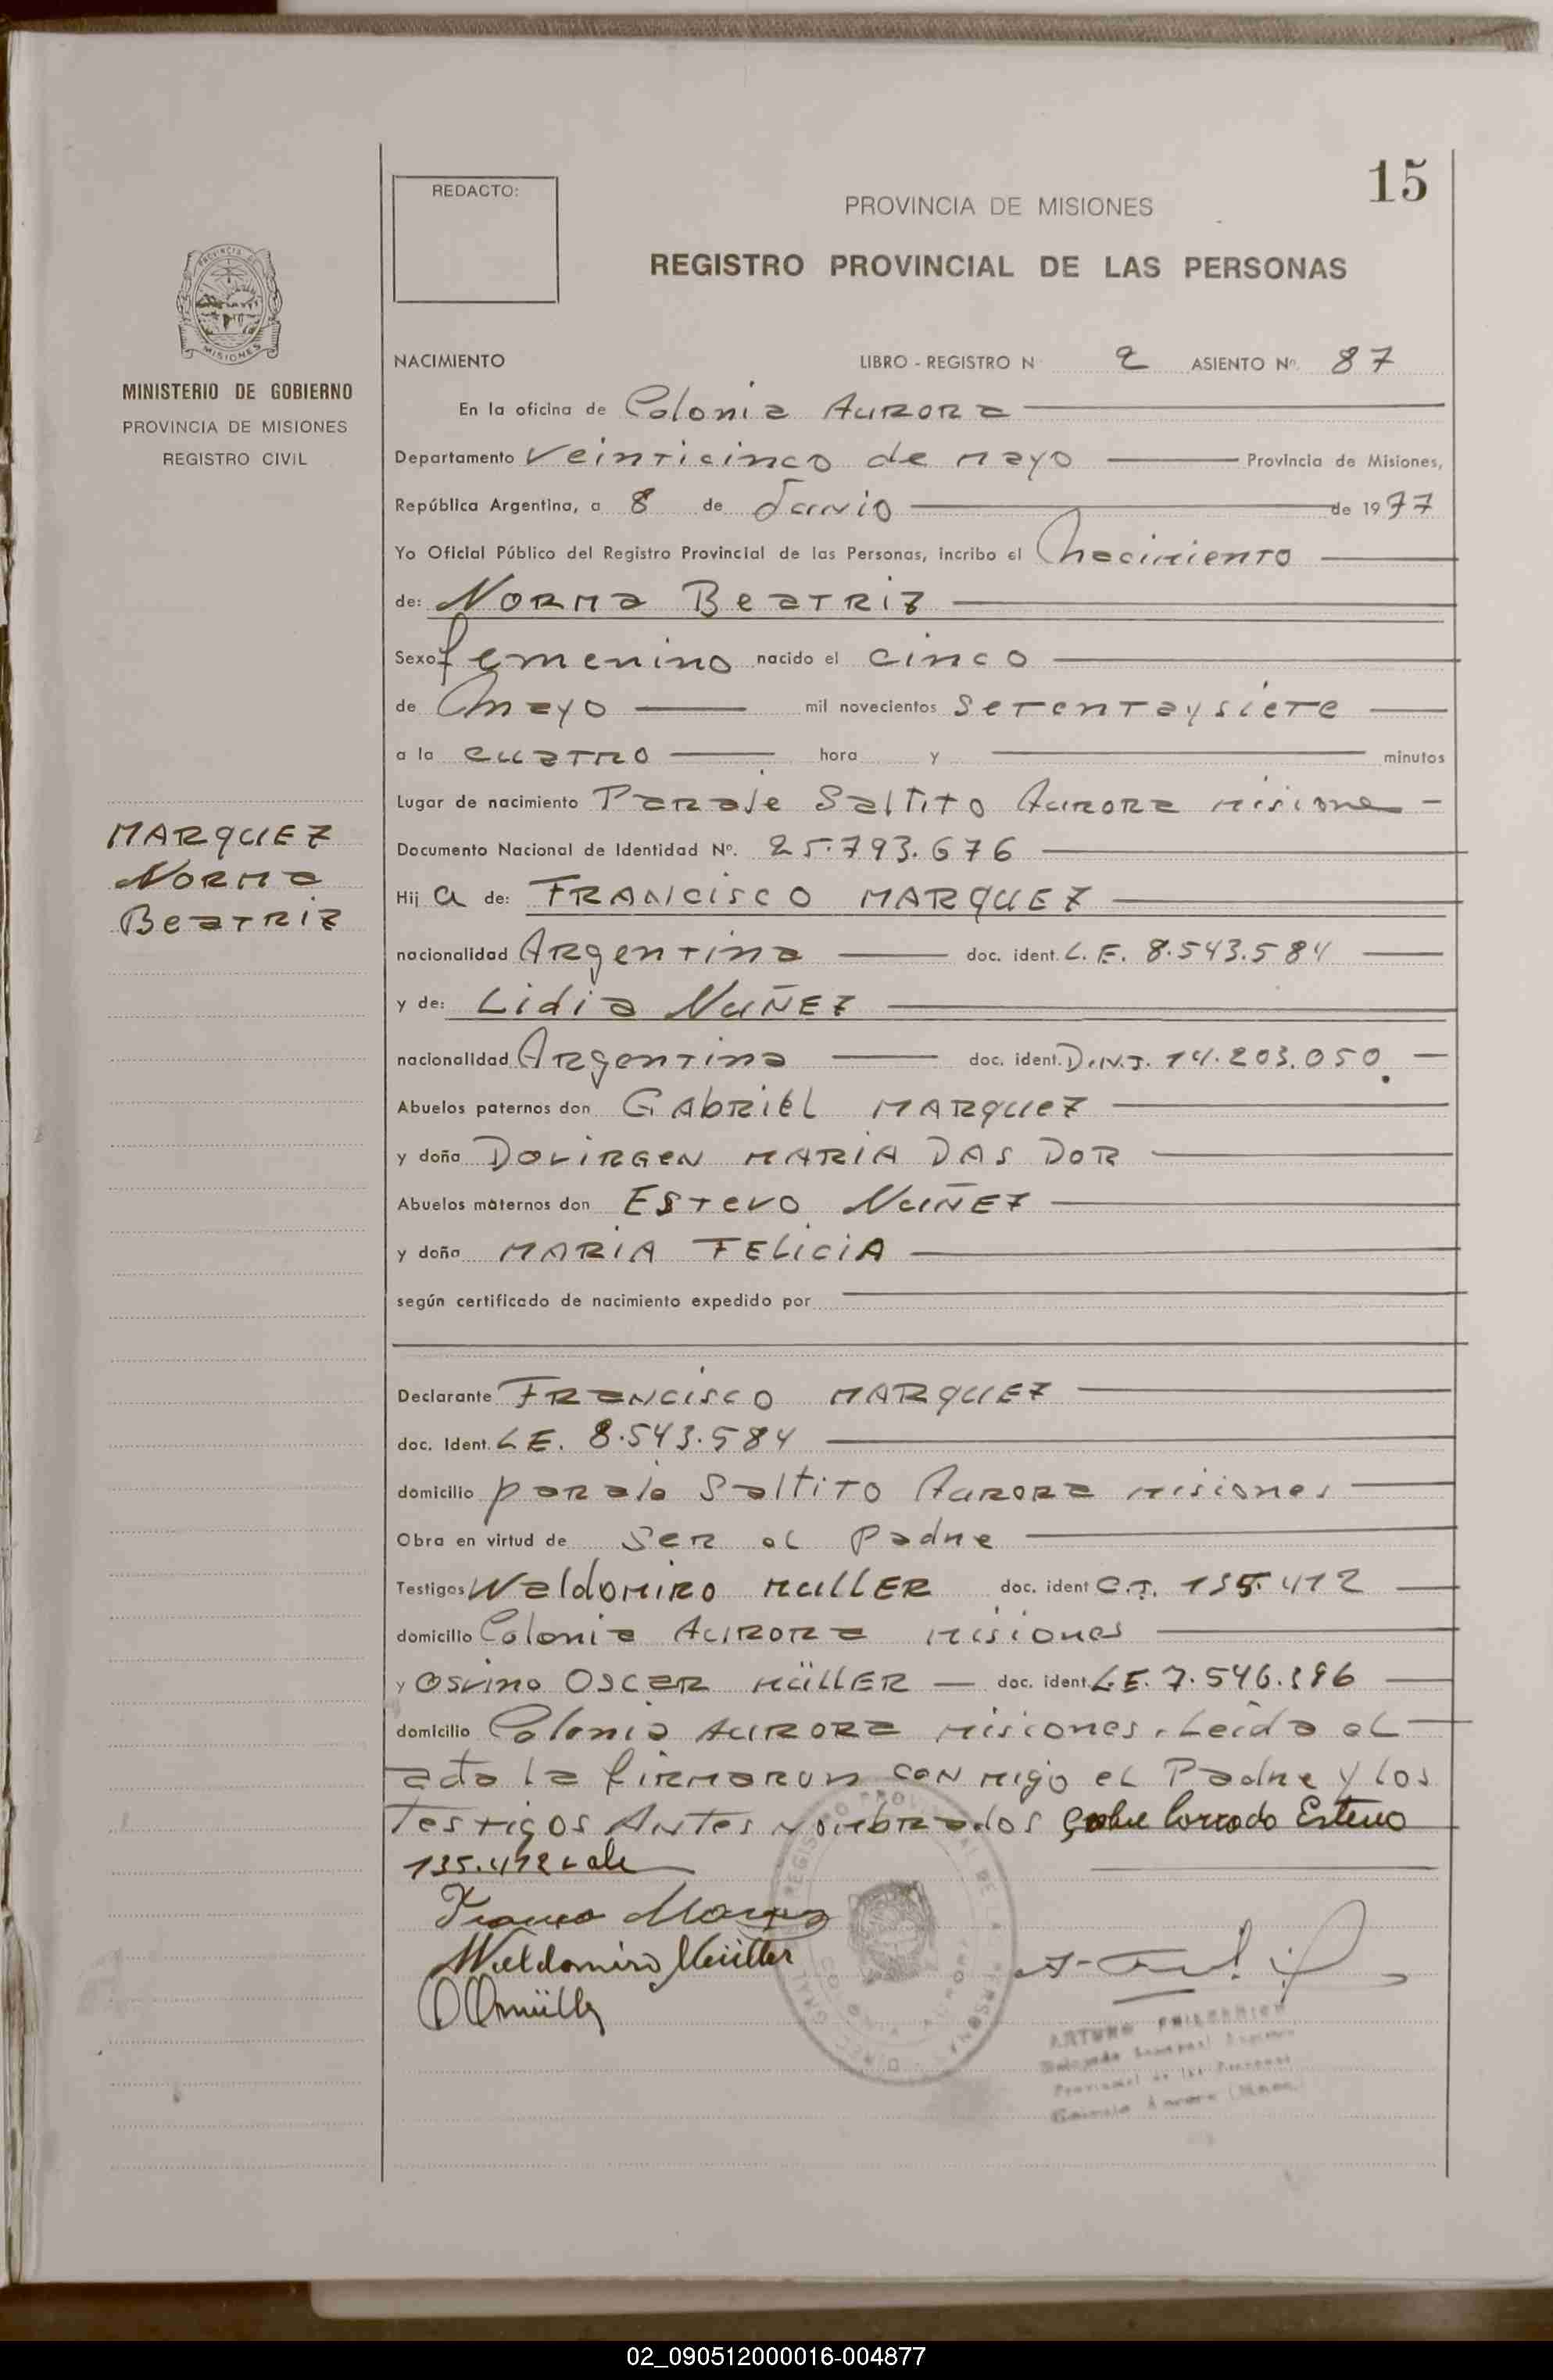 15
REDACTO:
PROVINCIA DE MISIONES
REGISTRO PROVINCIAL DE LAS PERSONAS
MISIONES
MINISTERIO DE GOBIERNO
PROVINCIA DE MISIONES
REGISTRO CIVIL
MARQUEZ
Norma
Beatriz
NACIMIENTO LIBRO - REGISTRO N 2 ASIENTO Nº. 87
En la oficina de Colonia Aurora
Departamento Veinticinco de mayo Provincia de Misiones,
República Argentina, a 8 de Junio de 1977
Yo Oficial Público del Registro Provincial de las Personas, incribo el Nacimiento
de: Norma Beatriz
Sexo femenino nacido el cinco
de Mayo mil novecientos setentaysiete
a la cuatro hora y minutos
Lugar de nacimiento Paraje Saltito Aurora Misiones
Documento Nacional de Identidad Nº. 25.793.676
Hij a de: FRANCISCO MARQUEZ
nacionalidad Argentina doc. ident. L.E. 8.543.584
y de: Lidia NUÑEZ
nacionalidad Argentina doc. ident. D.N.I. 14.203.050
Abuelos paternos don GAbRiEL MARQUEZ
y doña DOVIRGEN MARIA DAS DOR
Abuelos maternos don Estevo NUÑEZ
y doña MARIA FELICIA
según certificado de nacimiento expedido por
Declarante FRANCISCO MARQUEZ
doc. Ident. L E. 8.543.584
domicilio paraje Saltito Aurora Misiones
Obra en virtud de Ser el Padre
Testigos Waldomiro MULLER doc. ident C.I. 135.412
domicilio Colonia Aurora Misiones
y Osvino Oscar MÜLLER doc. ident. L.E. 7.546.196
domicilio Colonia Aurora Misiones. Leida el
acta la firmaron con migo el Padre y los
Testigos Antes Nombrados Sobre borrado Estevo
135.412 vale
Waldomiro Müller
OOmüller
ARTURO
Provincial de las Personas
Colonia Aurora
02_090512000016-004877